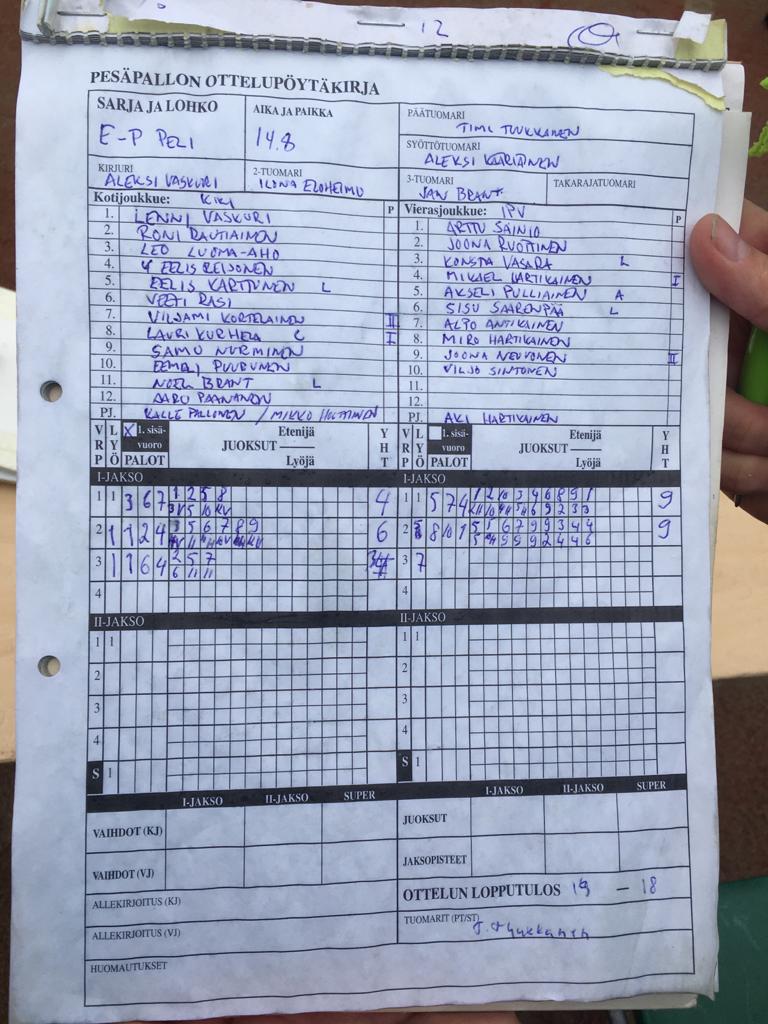 12
PESÄPALLON OTTELUPÖYTÄKIRJA
SARJA JA LOHKO
E-P PELI
AIKA JA PAIKKA
14.8
PÄÄTUOMARI
TIMI TUUKKANEN
SYÖTTÖTUOMARI
ALEKSI
KIRJURI
ALEKSI VASKURI
2-TUOMARI
ILONA ELOHEIMO
3-TUOMARI
JAN BRANT
TAKARAJATUOMARI
Kotijoukkue: KIKI
P
1. LENNI VASKURI
2. RONI RAUTIAINEN
3. LEO LUOMA-AHO
4. EELIS
5. EELIS KARTTUNEN L
6. VEETI RASI
7. VILJAMI KORTELAINEN II
8. LAURI KURHELA I
9. SAMU NURMINEN
10. EEMELI PUURUNEN
11. NOEL BRANT L
12. AARO PAANANEN
PJ. KALLE PALLONEN / MIKKO
Vierasjoukkue: IPV
P
1. ARTTU SAINIO
2. JOONA RUOTTINEN
3. KONSTA VASARA L
4. MIKAEL HARTIKAINEN I
5. AKSELI PULLIAINEN A
6. SISU SAARENPÄÄ L
7. ALPO ANTIKAINEN
8. MIRO HARTIKAINEN
9. JOONA NEUVONEN II
10. VILJO SINTONEN
11.
12.
PJ. AKI HARTIKAINEN
VRP LYÖ X 1. sisävuoro PALOT
Etenijä
JUOKSUT
Lyöjä
YHT
VRP LYÖ 1. sisävuoro PALOT
Etenijä
JUOKSUT
Lyöjä
YHT
I-JAKSO
1 1 3 6 7 1 2 5 8 4
2 1 1 2 4 3 5 6 7 8 9 6
3 1 1 6 4 2 5 7
6 11 11
4
I-JAKSO
1 1 5 7 4 1 2 10 3 4 6 8 9 1 9
2 8 10 1 5 1 6 7 9 9 3 4 4 9
3 7
4
II-JAKSO
1 1
2
3
4
S 1
II-JAKSO
1 1
2
3
4
S 1
I-JAKSO II-JAKSO SUPER
VAIHDOT (KJ)
VAIHDOT (VJ)
ALLEKIRJOITUS (KJ)
ALLEKIRJOITUS (VJ)
HUOMAUTUKSET
I-JAKSO II-JAKSO SUPER
JUOKSUT
JAKSOPISTEET
OTTELUN LOPPUTULOS 19 – 18
TUOMARIT (PT/ST)